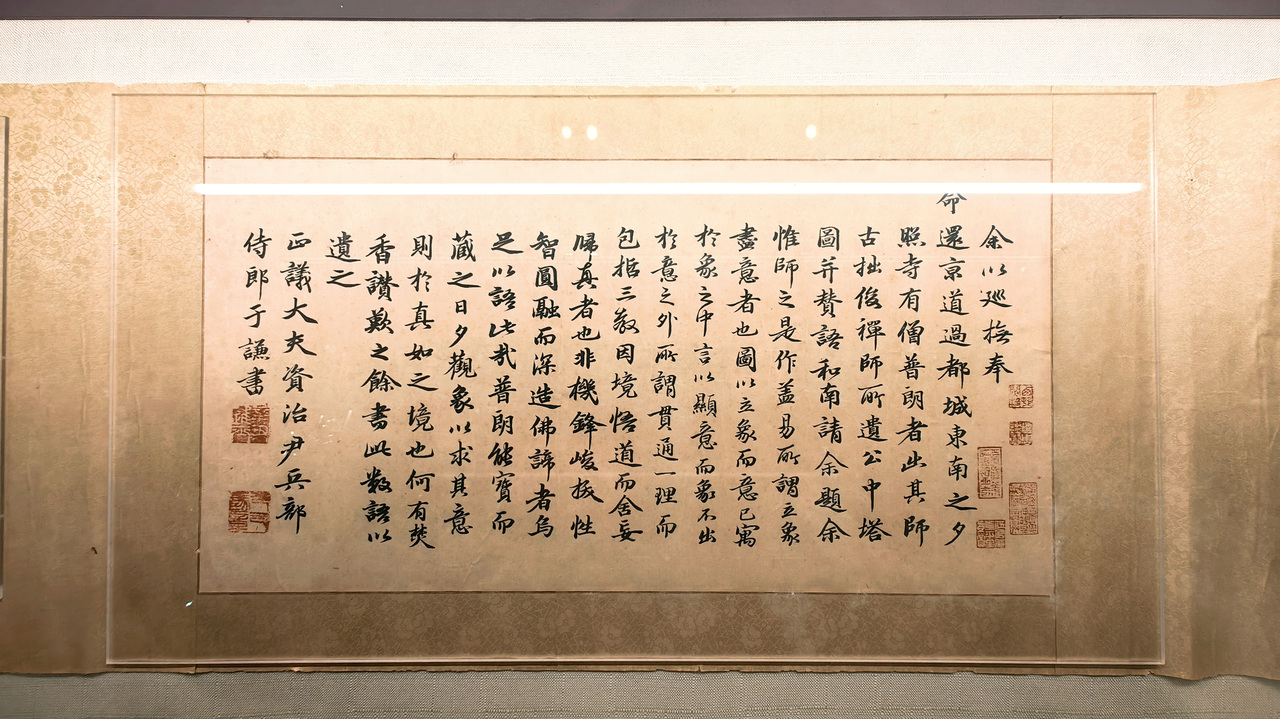 余以巡撫奉
命還京道過都城東南之夕
照寺有僧普朗者出其師
古拙俊禪師所遺公中塔
圖并賛語和南請余題余
惟師之是作盖易所謂立象
盡意者也圖以立象而意已寓
於象之中言以顯意而象不出
於意之外所謂貫通一理而
包括三教因境悟道而舍妄
歸真者也非機鋒峻拔性
智圓融而深造佛諦者烏
足以語此哉普朗能寶而
蔵之日夕觀象以求其意
則於真如之境也何有焚
香讃歎之餘書此數語以
遺之
正議大夫資治尹兵部
侍郎于謙書